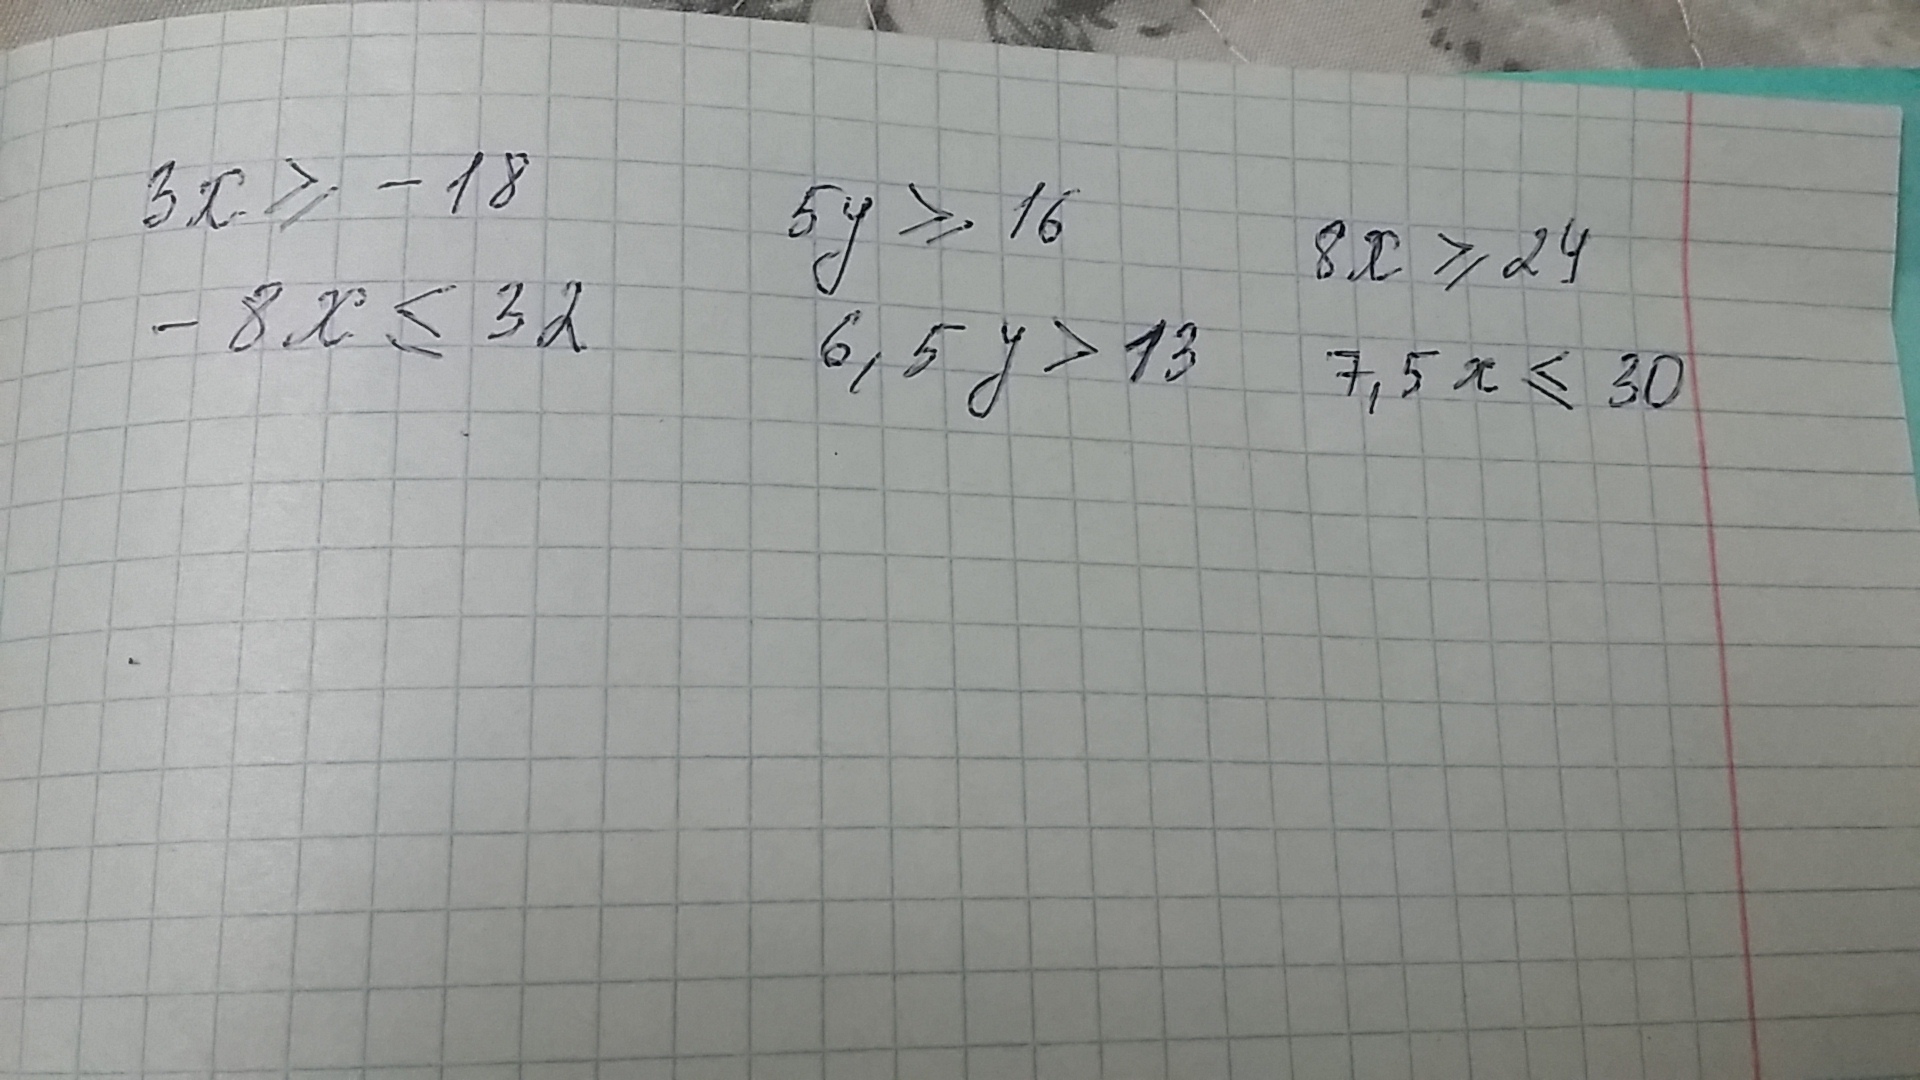 3x ⩾ -18
-8x ≤ 32
5y ⩾ 16
6,5y > 13
8x ⩾ 24
7,5x ⩽ 30